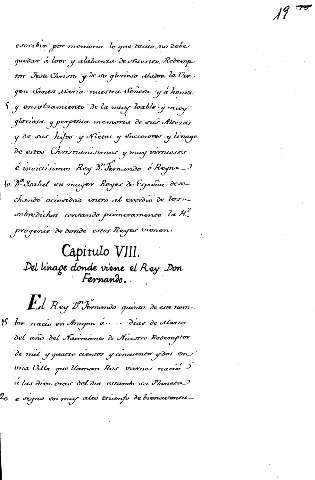 19
escribir por memoria lo que tacito no debe
quedar á loor y alabanza de Nuestro Redemp
tor Jesu Christo y de su gloriosa Madre la Vir
gen Santa Maria nuestra Señora y á honor
5 y ensalzamiento de la muy loable y muy
gloriosa y perpetua memoria de sus Altezas
y de sus hijos y Nietos y succesores y linage
de estos Christianisimos y muy virtuosos
é invictisimos Rey Dn. Fernando é Reyna
10 Da. Isabel su muger Reyes de España dese
chando ociosidad entro al exordio de los
sobredichos contando primeramente la
progenie de donde estos Reyes vienen.
Capitulo VIII.
Del linage donde viene el Rey Don
Fernando.
El Rey Dn. Fernando quinto de este nom
15 bre nació en Aragon á . . . . dias de Marzo
del año del Nacimiento de Nuestro Redemptor
de mil y quatro cientos y cincuenta y dos en
una Villa que llaman nació
á las diez oras del dia estando su Planeta
20 é signo en muy alto triunfo de bienaventu